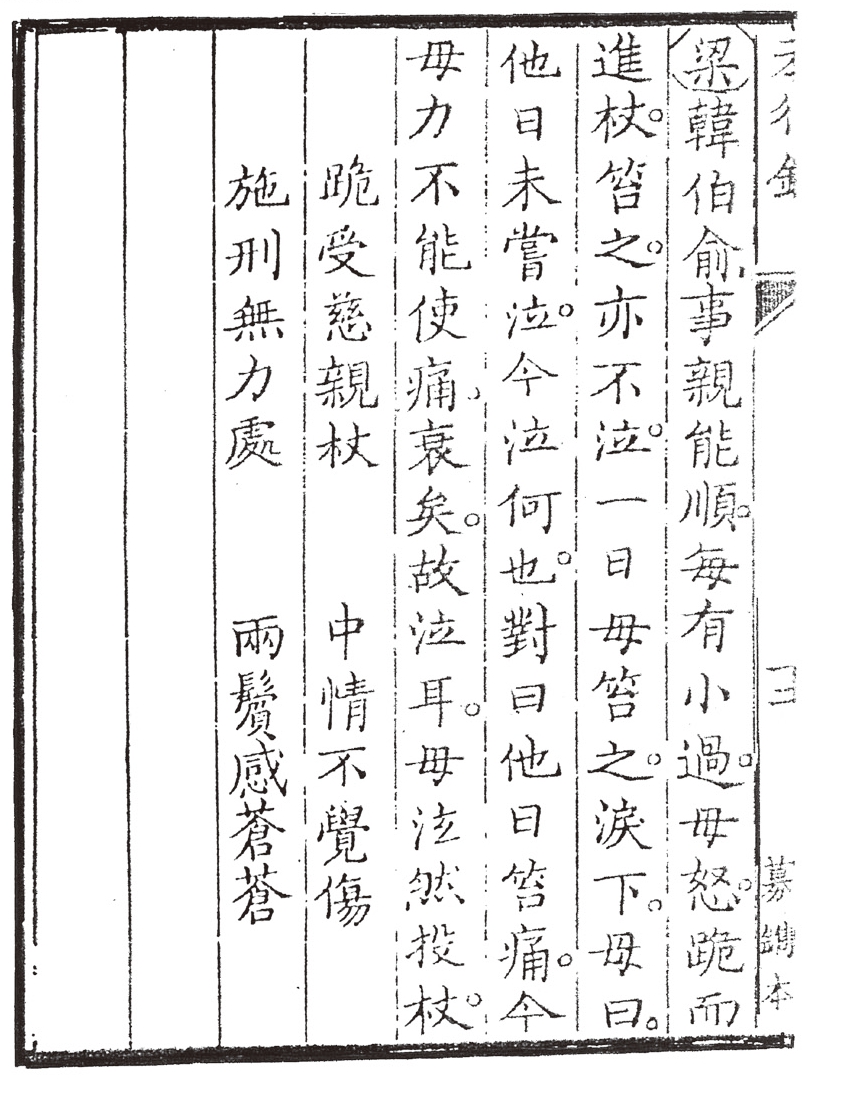 梁韓伯俞事親能順。每有小過。母怒。跪而
進杖。笞之。亦不泣。一日母笞之。淚下。母曰。
他日未嘗泣。今泣何也。對曰他日笞痛。今
母力不能使痛。衰矣。故泣耳。母泫然投杖。
跪受慈親杖　中情不覺傷
施刑無力處　兩鬢感蒼蒼